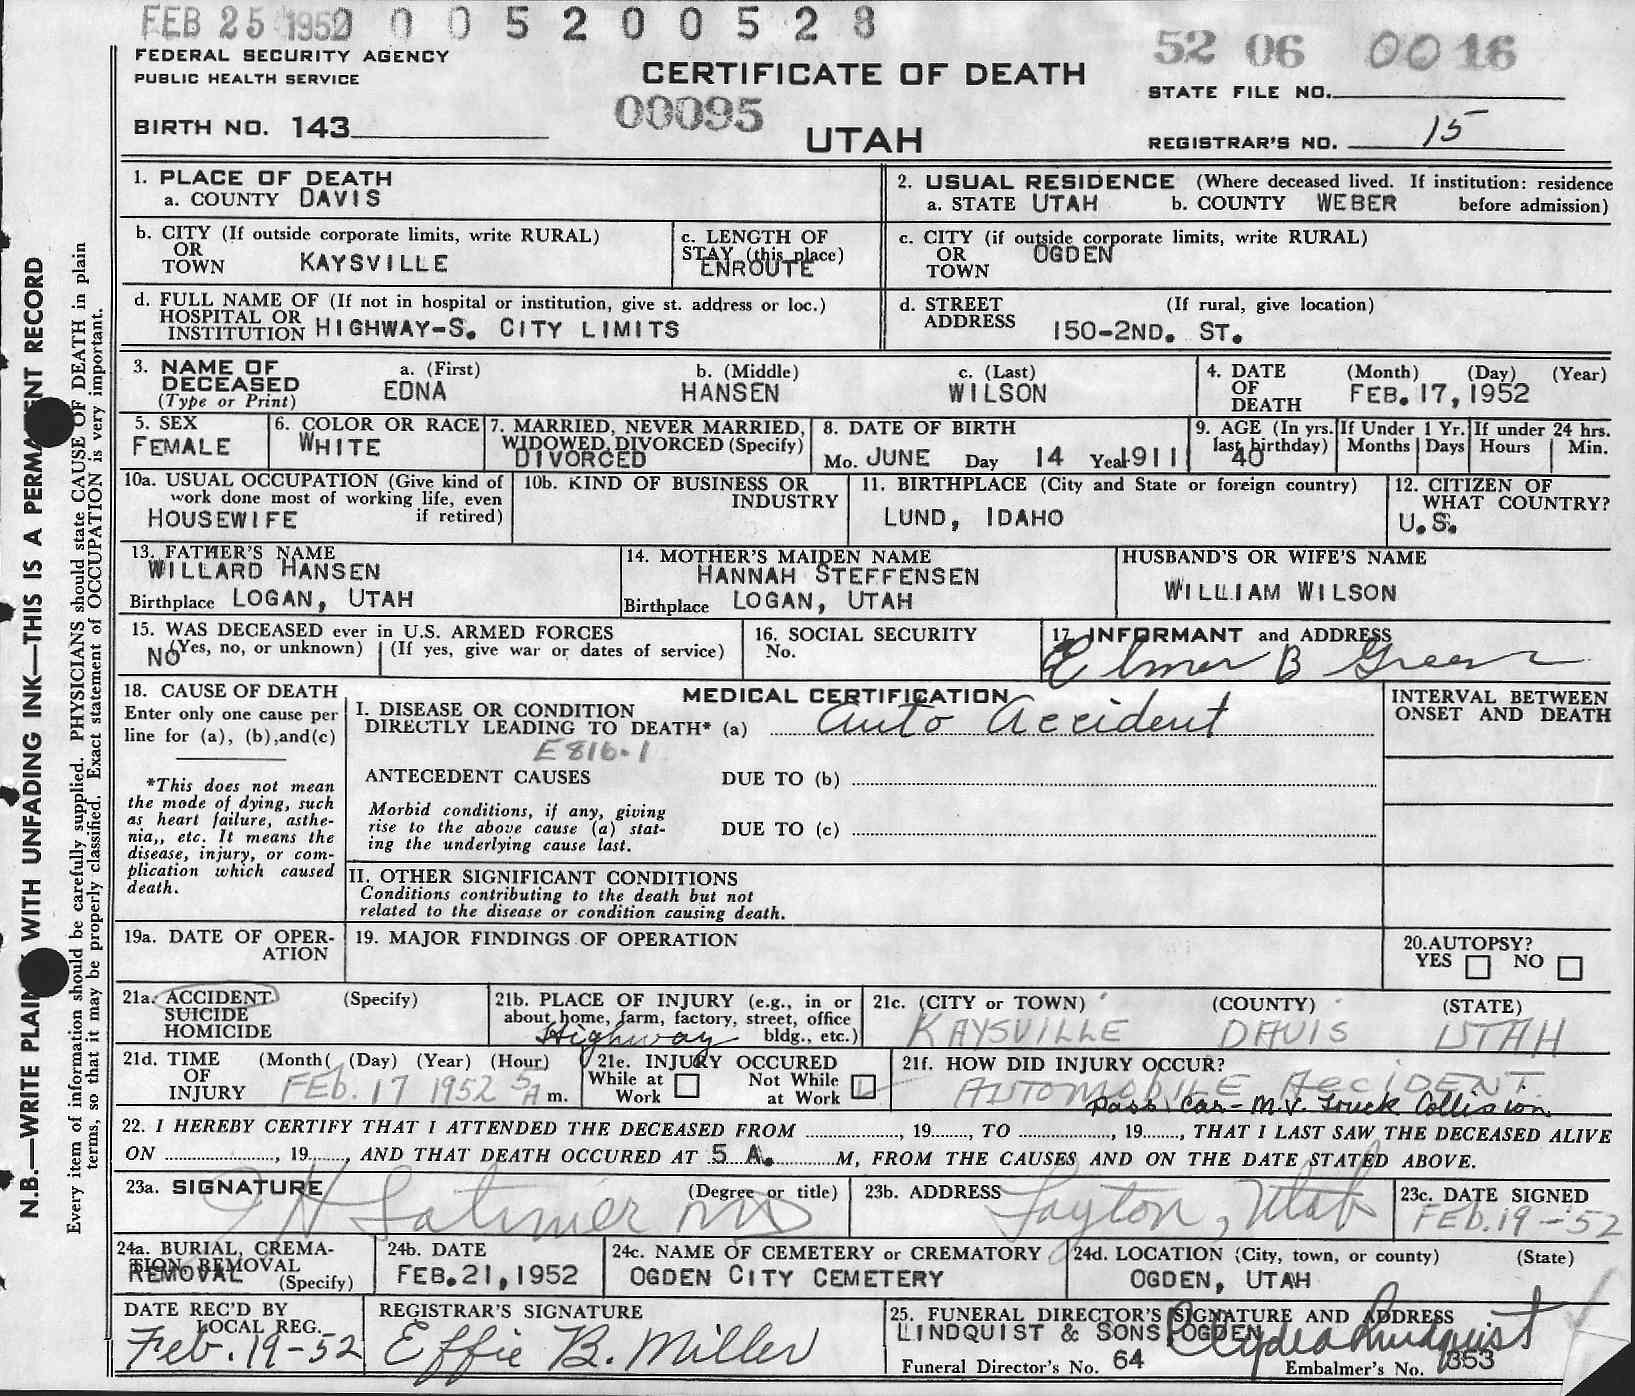 FEB 25 1952 0 0 5 2 0 0 5 2 8
52 06 00 16
FEDERAL SECURITY AGENCY
PUBLIC HEALTH SERVICE
CERTIFICATE OF DEATH
STATE FILE NO.
00095
BIRTH NO. 143
UTAH
REGISTRAR'S NO. 15
N.B.—WRITE PLAIN WITH UNFADING INK—THIS IS A PERMANENT RECORD
Every item of information should be carefully supplied. PHYSICIANS should state CAUSE OF DEATH in plain
terms, so that it may be properly classified. Exact statement of OCCUPATION is very important.
1. PLACE OF DEATH
a. COUNTY DAVIS
2. USUAL RESIDENCE (Where deceased lived. If institution: residence
a. STATE UTAH b. COUNTY WEBER before admission)
b. CITY (If outside corporate limits, write RURAL)
OR
TOWN KAYSVILLE
c. LENGTH OF
STAY (this place)
ENROUTE
c. CITY (if outside corporate limits, write RURAL)
OR OGDEN
TOWN
d. FULL NAME OF (If not in hospital or institution, give st. address or loc.)
HOSPITAL OR
INSTITUTION HIGHWAY-S. CITY LIMITS
d. STREET (If rural, give location)
ADDRESS 150-2ND. ST.
3. NAME OF a. (First) b. (Middle) c. (Last)
DECEASED EDNA HANSEN WILSON
(Type or Print)
4. DATE (Month) (Day) (Year)
OF FEB. 17, 1952
DEATH
5. SEX
FEMALE
6. COLOR OR RACE
WHITE
7. MARRIED, NEVER MARRIED,
WIDOWED, DIVORCED (Specify)
DIVORCED
8. DATE OF BIRTH
Mo. JUNE Day 14 Year 1911
9. AGE (In yrs.
last birthday)
40
If Under 1 Yr.
Months Days
If under 24 hrs.
Hours Min.
10a. USUAL OCCUPATION (Give kind of
work done most of working life, even
HOUSEWIFE if retired)
10b. KIND OF BUSINESS OR
INDUSTRY
11. BIRTHPLACE (City and State or foreign country)
LUND, IDAHO
12. CITIZEN OF
WHAT COUNTRY?
U.S.
13. FATHER'S NAME
WILLARD HANSEN
Birthplace LOGAN, UTAH
14. MOTHER'S MAIDEN NAME
HANNAH STEFFENSEN
Birthplace LOGAN, UTAH
HUSBAND'S OR WIFE'S NAME
WILLIAM WILSON
15. WAS DECEASED ever in U.S. ARMED FORCES
NO (Yes, no, or unknown) (If yes, give war or dates of service)
16. SOCIAL SECURITY
No.
17. INFORMANT and ADDRESS
Elmer B Green
18. CAUSE OF DEATH
Enter only one cause per
line for (a), (b),and(c)
*This does not mean
the mode of dying, such
as heart failure, asthe-
nia,, etc. It means the
disease, injury, or com-
plication which caused
death.
MEDICAL CERTIFICATION
I. DISEASE OR CONDITION
DIRECTLY LEADING TO DEATH* (a) Auto Accident
E816.1
ANTECEDENT CAUSES DUE TO (b)
Morbid conditions, if any, giving
rise to the above cause (a) stat-
ing the underlying cause last.
DUE TO (c)
II. OTHER SIGNIFICANT CONDITIONS
Conditions contributing to the death but not
related to the disease or condition causing death.
INTERVAL BETWEEN
ONSET AND DEATH
19a. DATE OF OPER-
ATION
19. MAJOR FINDINGS OF OPERATION
20.AUTOPSY?
YES NO
21a. ACCIDENT (Specify)
SUICIDE
HOMICIDE
21b. PLACE OF INJURY (e.g., in or
about home, farm, factory, street, office
Highway bldg., etc.)
21c. (CITY or TOWN) (COUNTY) (STATE)
KAYSVILLE DAVIS UTAH
21d. TIME (Month( (Day) (Year) (Hour)
OF
INJURY FEB. 17 1952 5 A m.
21e. INJURY OCCURED
While at Not While
Work at Work
21f. HOW DID INJURY OCCUR?
AUTOMOBILE ACCIDENT.
pass. car - M.V. Truck Collision
22. I HEREBY CERTIFY THAT I ATTENDED THE DECEASED FROM , 19 , TO , 19 , THAT I LAST SAW THE DECEASED ALIVE
ON , 19 , AND THAT DEATH OCCURED AT 5 A. M, FROM THE CAUSES AND ON THE DATE STATED ABOVE.
23a. SIGNATURE (Degree or title)
Latimer MD
23b. ADDRESS
Layton, Utah
23c. DATE SIGNED
FEB. 19-52
24a. BURIAL, CREMA-
TION, REMOVAL
REMOVAL (Specify)
24b. DATE
FEB. 21, 1952
24c. NAME OF CEMETERY OR CREMATORY
OGDEN CITY CEMETERY
24d. LOCATION (City, town, or county) (State)
OGDEN, UTAH
DATE REC'D BY
LOCAL REG.
Feb. 19-52
REGISTRAR'S SIGNATURE
Effie B. Miller
25. FUNERAL DIRECTOR'S SIGNATURE AND ADDRESS
LINDQUIST & SONS OGDEN Clyde Lindquist
Funeral Director's No. 64 Embalmer's No. 353